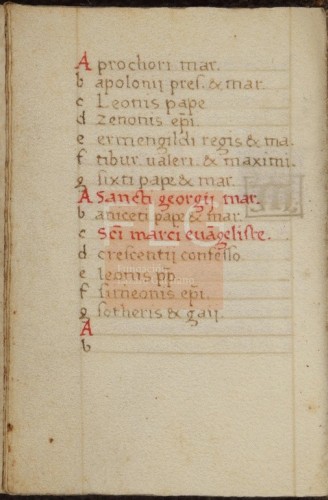 A prochori mar.
b apolonij pres. & mar.
c Leonis pape
d zenonis ep̄i.
e ermengildi regis & ma.
f tibur. ualeri. & maximi.
g sixti pape & mar.
A Sancti georgij mar.
b aniceti pape & mar.
c Sc̄i marci euāgeliste.
d crescentij confesso
e leonis pp̄.
f simeonis ep̄i.
g sotheris & gaij.
A
b